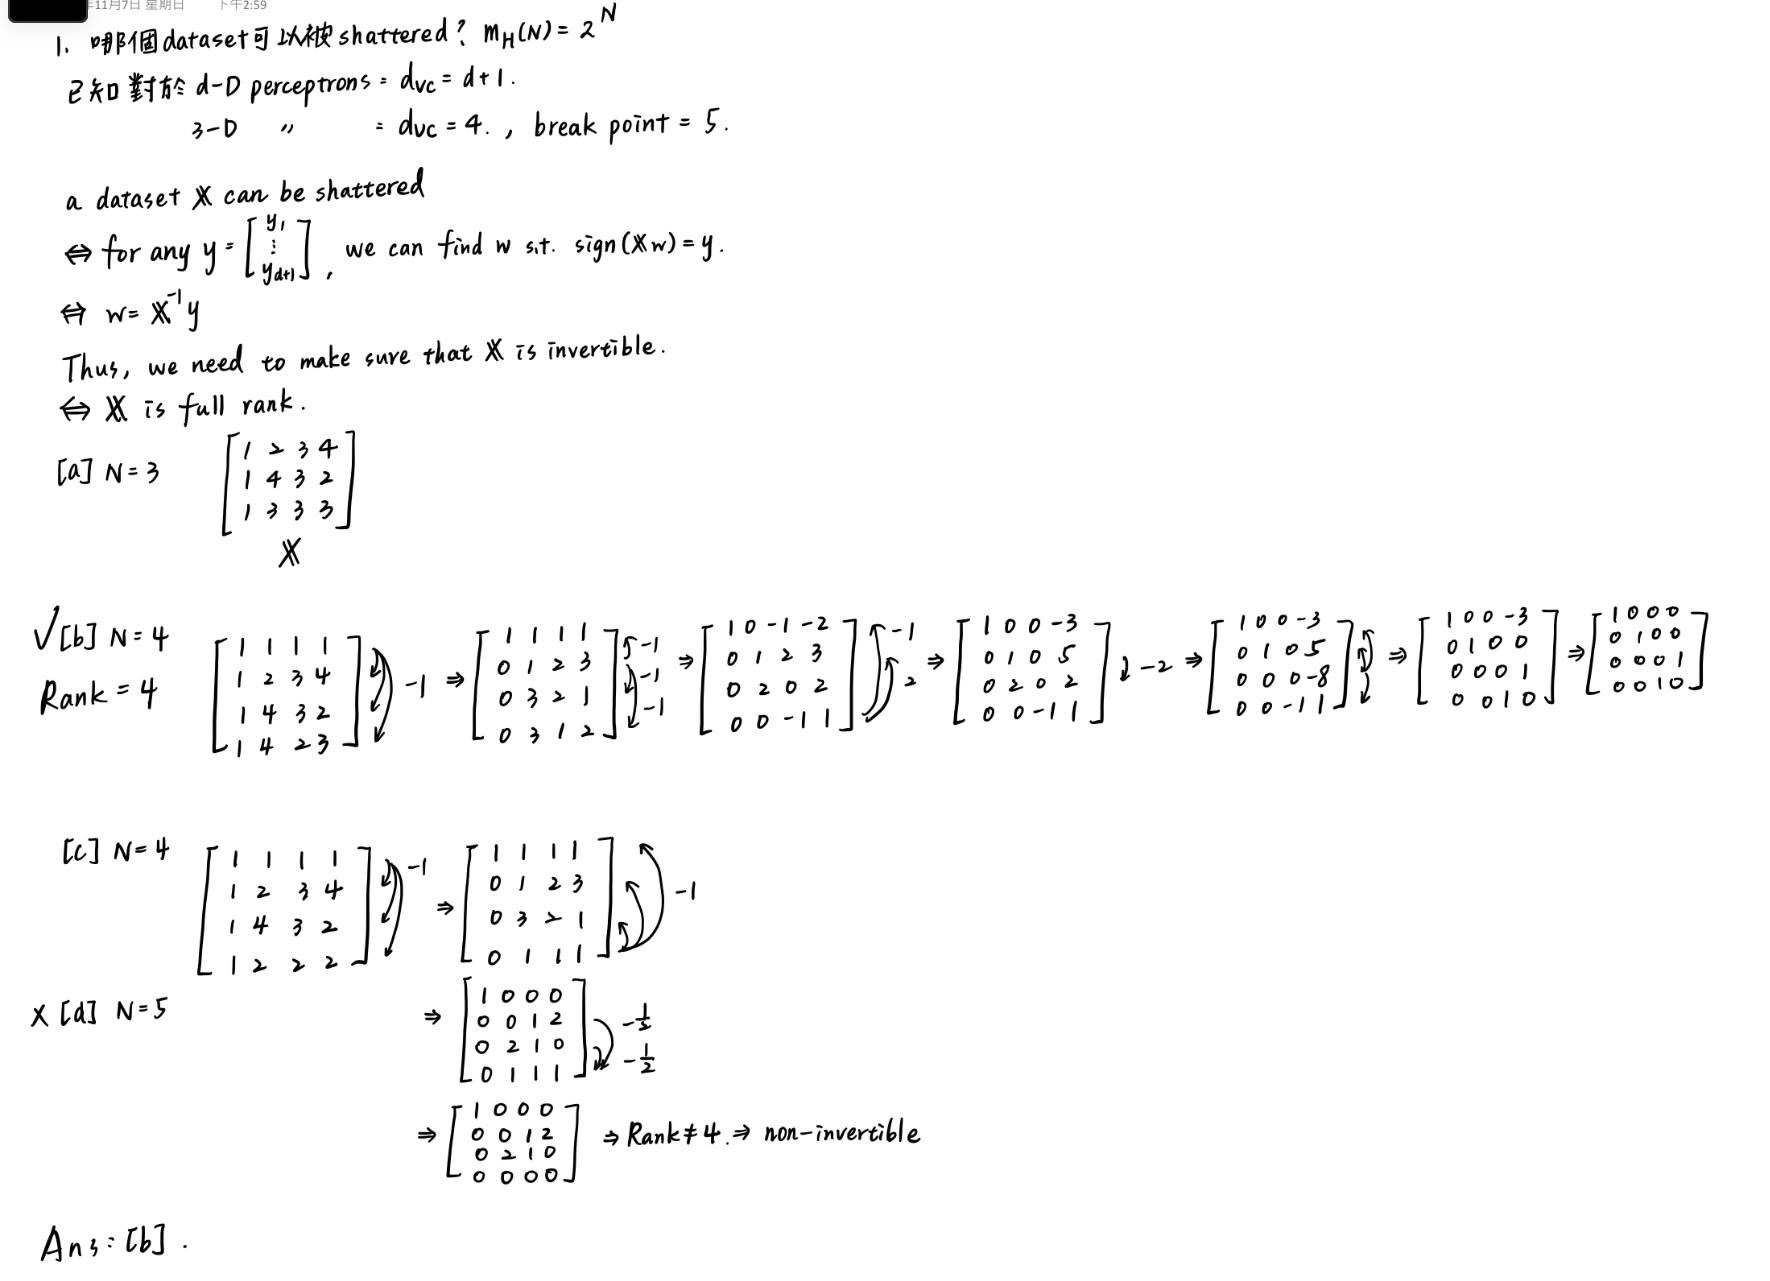 年11月7日 星期日 下午2:59
1. 哪個dataset可以被shattered? m_H(N) = 2^N
已知對於 d-D perceptrons = d_vc = d+1.
3-D 〃 = d_vc = 4. , break point = 5.
a dataset X can be shattered
⇔ for any y = [y_1 ⋮ y_{d+1}], we can find w s.t. sign(Xw) = y.
⇔ w = X^{-1}y
Thus, we need to make sure that X is invertible.
⇔ X is full rank.
[a] N = 3
[1 2 3 4
1 4 3 2
1 3 3 3]
X
✓[b] N = 4
Rank = 4
[1 1 1 1
1 2 3 4
1 4 3 2
1 4 2 3]
-1
⇒
[1 1 1 1
0 1 2 3
0 3 2 1
0 3 1 2]
-1
-1
-1
⇒
[1 0 -1 -2
0 1 2 3
0 2 0 2
0 0 -1 1]
-1
2
⇒
[1 0 0 -3
0 1 0 5
0 2 0 2
0 0 -1 1]
-2
⇒
[1 0 0 -3
0 1 0 5
0 0 0 -8
0 0 -1 1]
⇒
[1 0 0 -3
0 1 0 0
0 0 0 1
0 0 1 0]
⇒
[1 0 0 0
0 1 0 0
0 0 0 1
0 0 1 0]
[c] N = 4
[1 1 1 1
1 2 3 4
1 4 3 2
1 2 2 2]
-1
⇒
[1 1 1 1
0 1 2 3
0 3 2 1
0 1 1 1]
-1
⇒
[1 0 0 0
0 0 1 2
0 2 1 0
0 1 1 1]
-1/2
-1/2
⇒
[1 0 0 0
0 0 1 2
0 2 1 0
0 0 0 0]
⇒ Rank ≠ 4. ⇒ non-invertible
X [d] N = 5
Ans: [b].